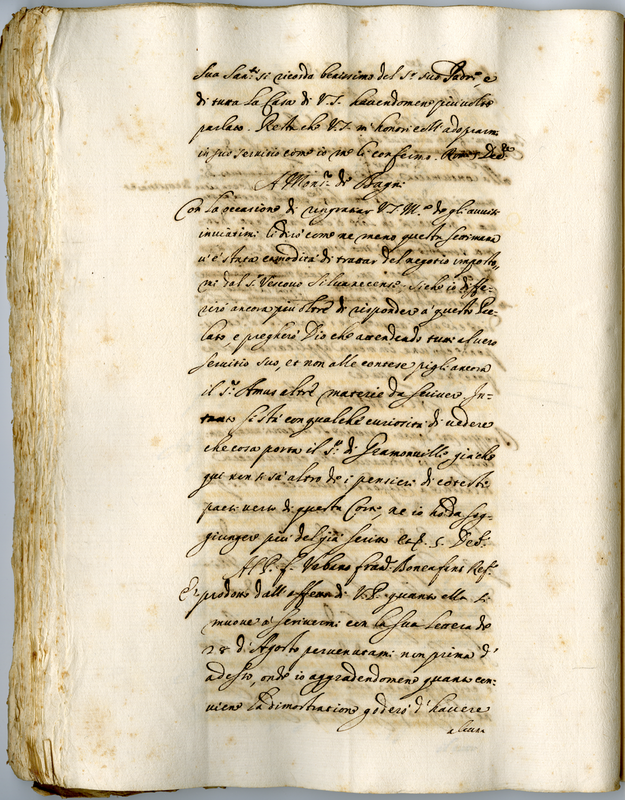 Sua San.tà si ricorda benissimo del S.r suo Padre, e
di tutta la Casa di V.S. havendomene più volte
parlato. Resta che V.S. m'honori coll'adoprarmi
in suo servitio come io me le confermo. Roma 5 Dec.re
A Mons.r de Bagni
Con la occasione di ringratiar V.S.Ill.ma de gli avvisi
inviatimi le dirò come ne meno questa settimana
v'è stata commodità di trattar del negotio impostomi
dal S.r Vescovo Si che io diffe-
rirò ancora più oltre di rispondere à questo Pre-
lato, e pregherò Dio che attendendo tutti al vero
servitio suo, et non alle contese pigli ancora
il S.r altre materie da scrivere. In-
tanto si stà con qualche curiosità di vedere
che cosa porta il S.r di Gramonville già che
qui non si sà altro de i pensieri di coteste
parti verso di questa Corte, ne io hò da sog-
giunger più del già scritto &c. 5. Dec.re
Al P. f. Urbano
È prodotto dall'affetto di V.P. quanto ella si
muove à scrivermi con la sua lettera de
28 di Agosto pervenutami non prima d'
adesso, onde io aggradendomene quanto con-
viene la dimostratione goderò d'havere
alcuna